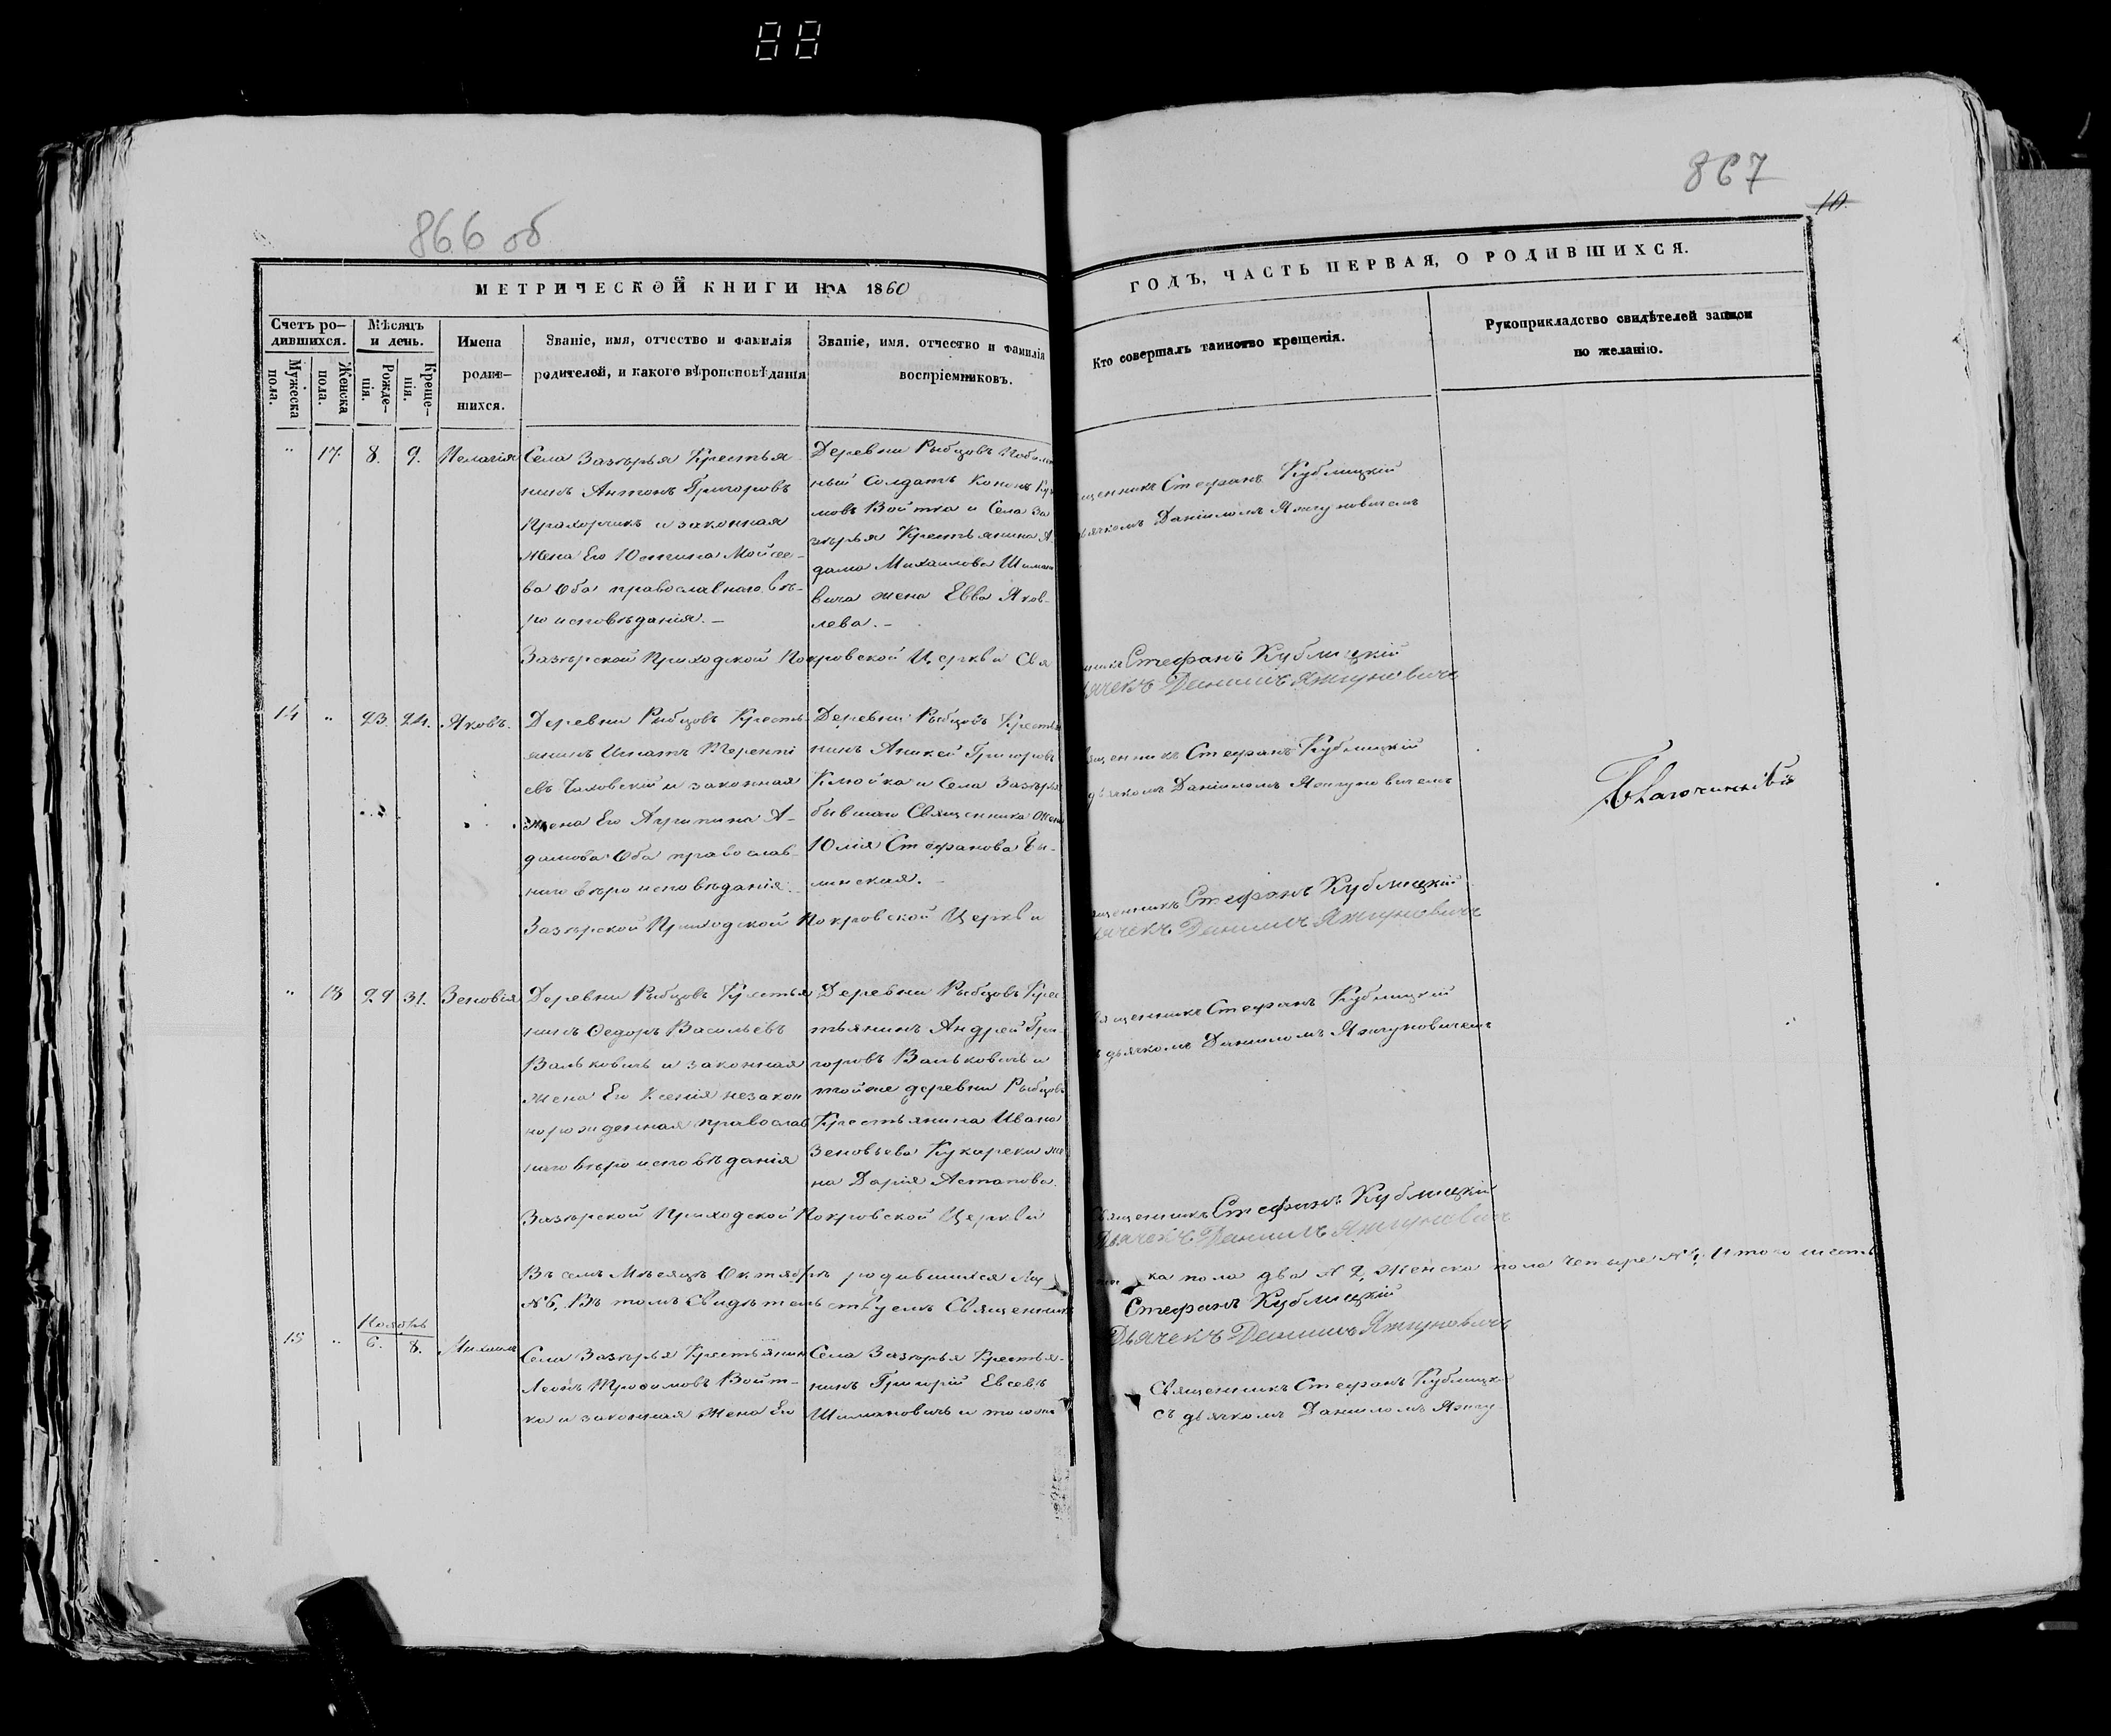 88
866 об
867
10.
МЕТРИЧЕСКОЙ КНИГИ НА 1860
ГОДЪ, ЧАСТЬ ПЕРВАЯ, О РОДИВШИХСЯ.
Счетъ ро-
дившихся.
Мужеска
пола.
Женска
пола.
Мѣсяцъ
и день.
Рожде-
нія.
Креще-
нія.
Имена
родив-
шихся.
Званіе, имя, отчество и фамилія
родителей, и какого вѣроисповѣданія
Званіе, имя, отчество и фамилія
воспріемниковъ.
Кто совершалъ таинство крещенія.
Рукоприкладство свидѣтелей записи
по желанію.
" 17. 8. 9. Пелагія
Села Зазѣрья Крестья-
нинъ Антонъ Григоровъ
Прахорчикъ и законная
жена Его Юстина Мойсее-
ва Оба православнаго вѣ-
роисповѣданія. —
Деревни Рыбцовъ
ный Солдатъ Кононъ
мовъ Войтка и Села За
зѣрья Крестьянина А-
дама Михаилова
вича жена Евва Яков-
лева. —
щенникъ Стефанъ Кублицкій
дьячкомъ Даніиломъ Яжгуновичемъ
Зазѣрской Приходской Покровской Церкви Свя
Стефанъ Кублицкій
дьячекъ Даниилъ Яжгуновичъ
14 " 23. 24. Яковъ.
Деревни Рыбцовъ Кресть-
янинъ Игнатъ Теренті
евъ Чаховскій и законная
жена Его Агрипина А-
дамова Оба православ-
наго вѣроисповѣданія. —
Деревни Рыбцовъ Крестья
нинъ Аникей Григоровъ
Клюйка и Села Зазѣрья
бывшаго Священника жена
Юлія Стефанова Бы-
линская. —
щенникъ Стефанъ Кублицкій
дьячкомъ Даніиломъ Яжгуновичемъ
Благочинный
Зазѣрской Приходской Покровской Церкви
щенникъ Стефанъ Кублицкій
дьячекъ Даниилъ Яжгуновичъ
" 18 29 31. Зеновія
Деревни Рыбцовъ Крестья
нинъ Федоръ Васильевъ
Вальковичъ и законная
жена Его Ксенія незакон
норожденная православ
наго вѣроисповѣданія
Деревни Рыбцовъ Крес-
тьянинъ Андрей Гри-
горовъ Вальковичъ и
тойже деревни Рыбцовъ
Крестьянина Ивана
Зеновьева Кукареки же
на Дарія Астапова.
Священникъ Стефанъ Кублицкій
дьячкомъ Даниломъ Яжгуновичемъ
Зазѣрской Приходской Покровской Церкви
Священникъ Стефанъ Кублицкій
Дьячекъ Даниилъ Яжгуновичъ
Въ семъ Мѣсяцѣ Октябрѣ родившихся Муж
ка пола два № 2, Женска пола четыре № 4, Итого шесть
№ 6, Въ томъ Свидѣтельствуемъ Священникъ
Стефанъ Кублицкій
Дьячекъ Даниилъ Яжгуновичъ
Ноябрь
15 " 6. 8. Михаилъ
Села Зазѣрья Крестьянин
Леонъ Трофимовъ Войт-
ка и законная жена Его
Села Зазѣрья Крестья-
нинъ Григорій Евсеевъ
Шимановичъ и тогоже
Священникъ Стефанъ Кублицкі
съ дьячкомъ Даниломъ Яжгу